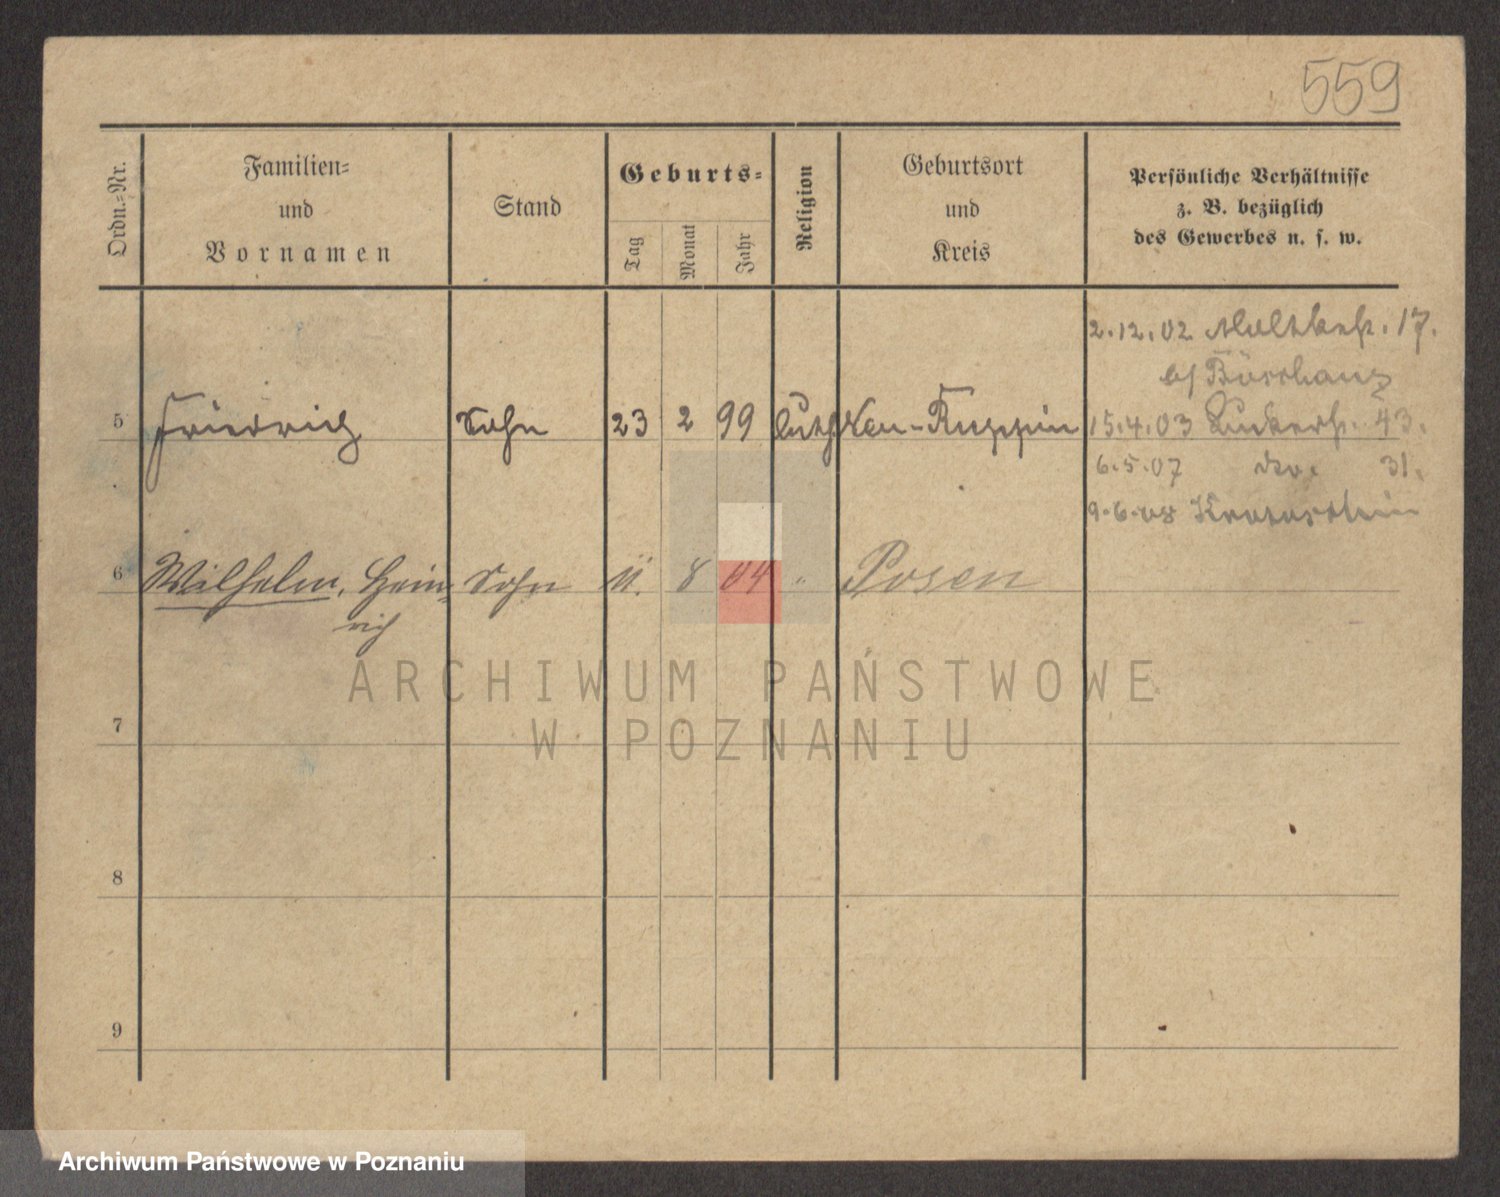 559
Ordn.=Nr.
Familien=
und
Vornamen
Stand
Geburts=
Tag
Monat
Jahr
Religion
Geburtsort
und
Kreis
Persönliche Verhältnisse
z. B. bezüglich
des Gewerbes u. s. w.
2.12.02 Moltkestr. 17.
b/
5 Friedrich Sohn 23 2 99 luth Neu-Ruppin 15.4.03 43.
6.5.07 dto. 31.
9.6.08
6 Wilhelm, Hein= Sohn 11. 8 04 " Posen
rich
7
8
9
ARCHIWUM PAŃSTWOWE
W POZNANIU
Archiwum Państwowe w Poznaniu